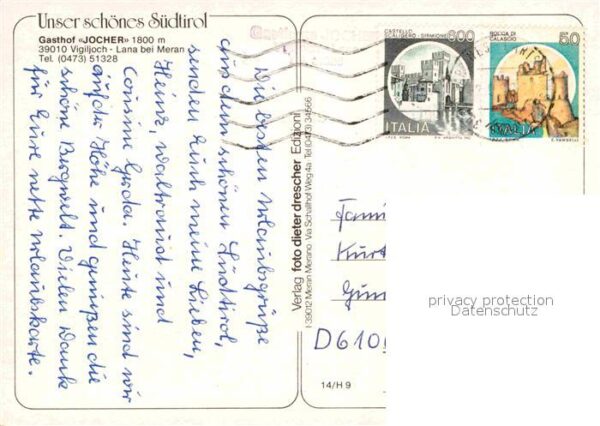 Unser schönes Südtirol
Gasthof «JOCHER» 1800 m
39010 Vigiljoch - Lana bei Meran
Tel. (0473) 51328
Die besten Urlaubsgrüße
aus dem schönen Südtirol,
senden Euch meine Lieben,
Heinz, Waltraud und
Cousin Gerda. Heute sind wir
auf der Höhe und genießen die
schöne Bergwelt. Vielen Dank
für Eure nette Urlaubskarte.
Verlag foto dieter drescher Edizioni
I-39012 Meran Merano · Via Schaffhof Weg 4a · Tel (0473) 34566
CASTELLO SCALIGERO - SIRMIONE 600
ITALIA
ROCCA DI CALASCIO 50
ITALIA
E. VANGELLI
Kurt
D 610
14/H 9
privacy protection
Datenschutz